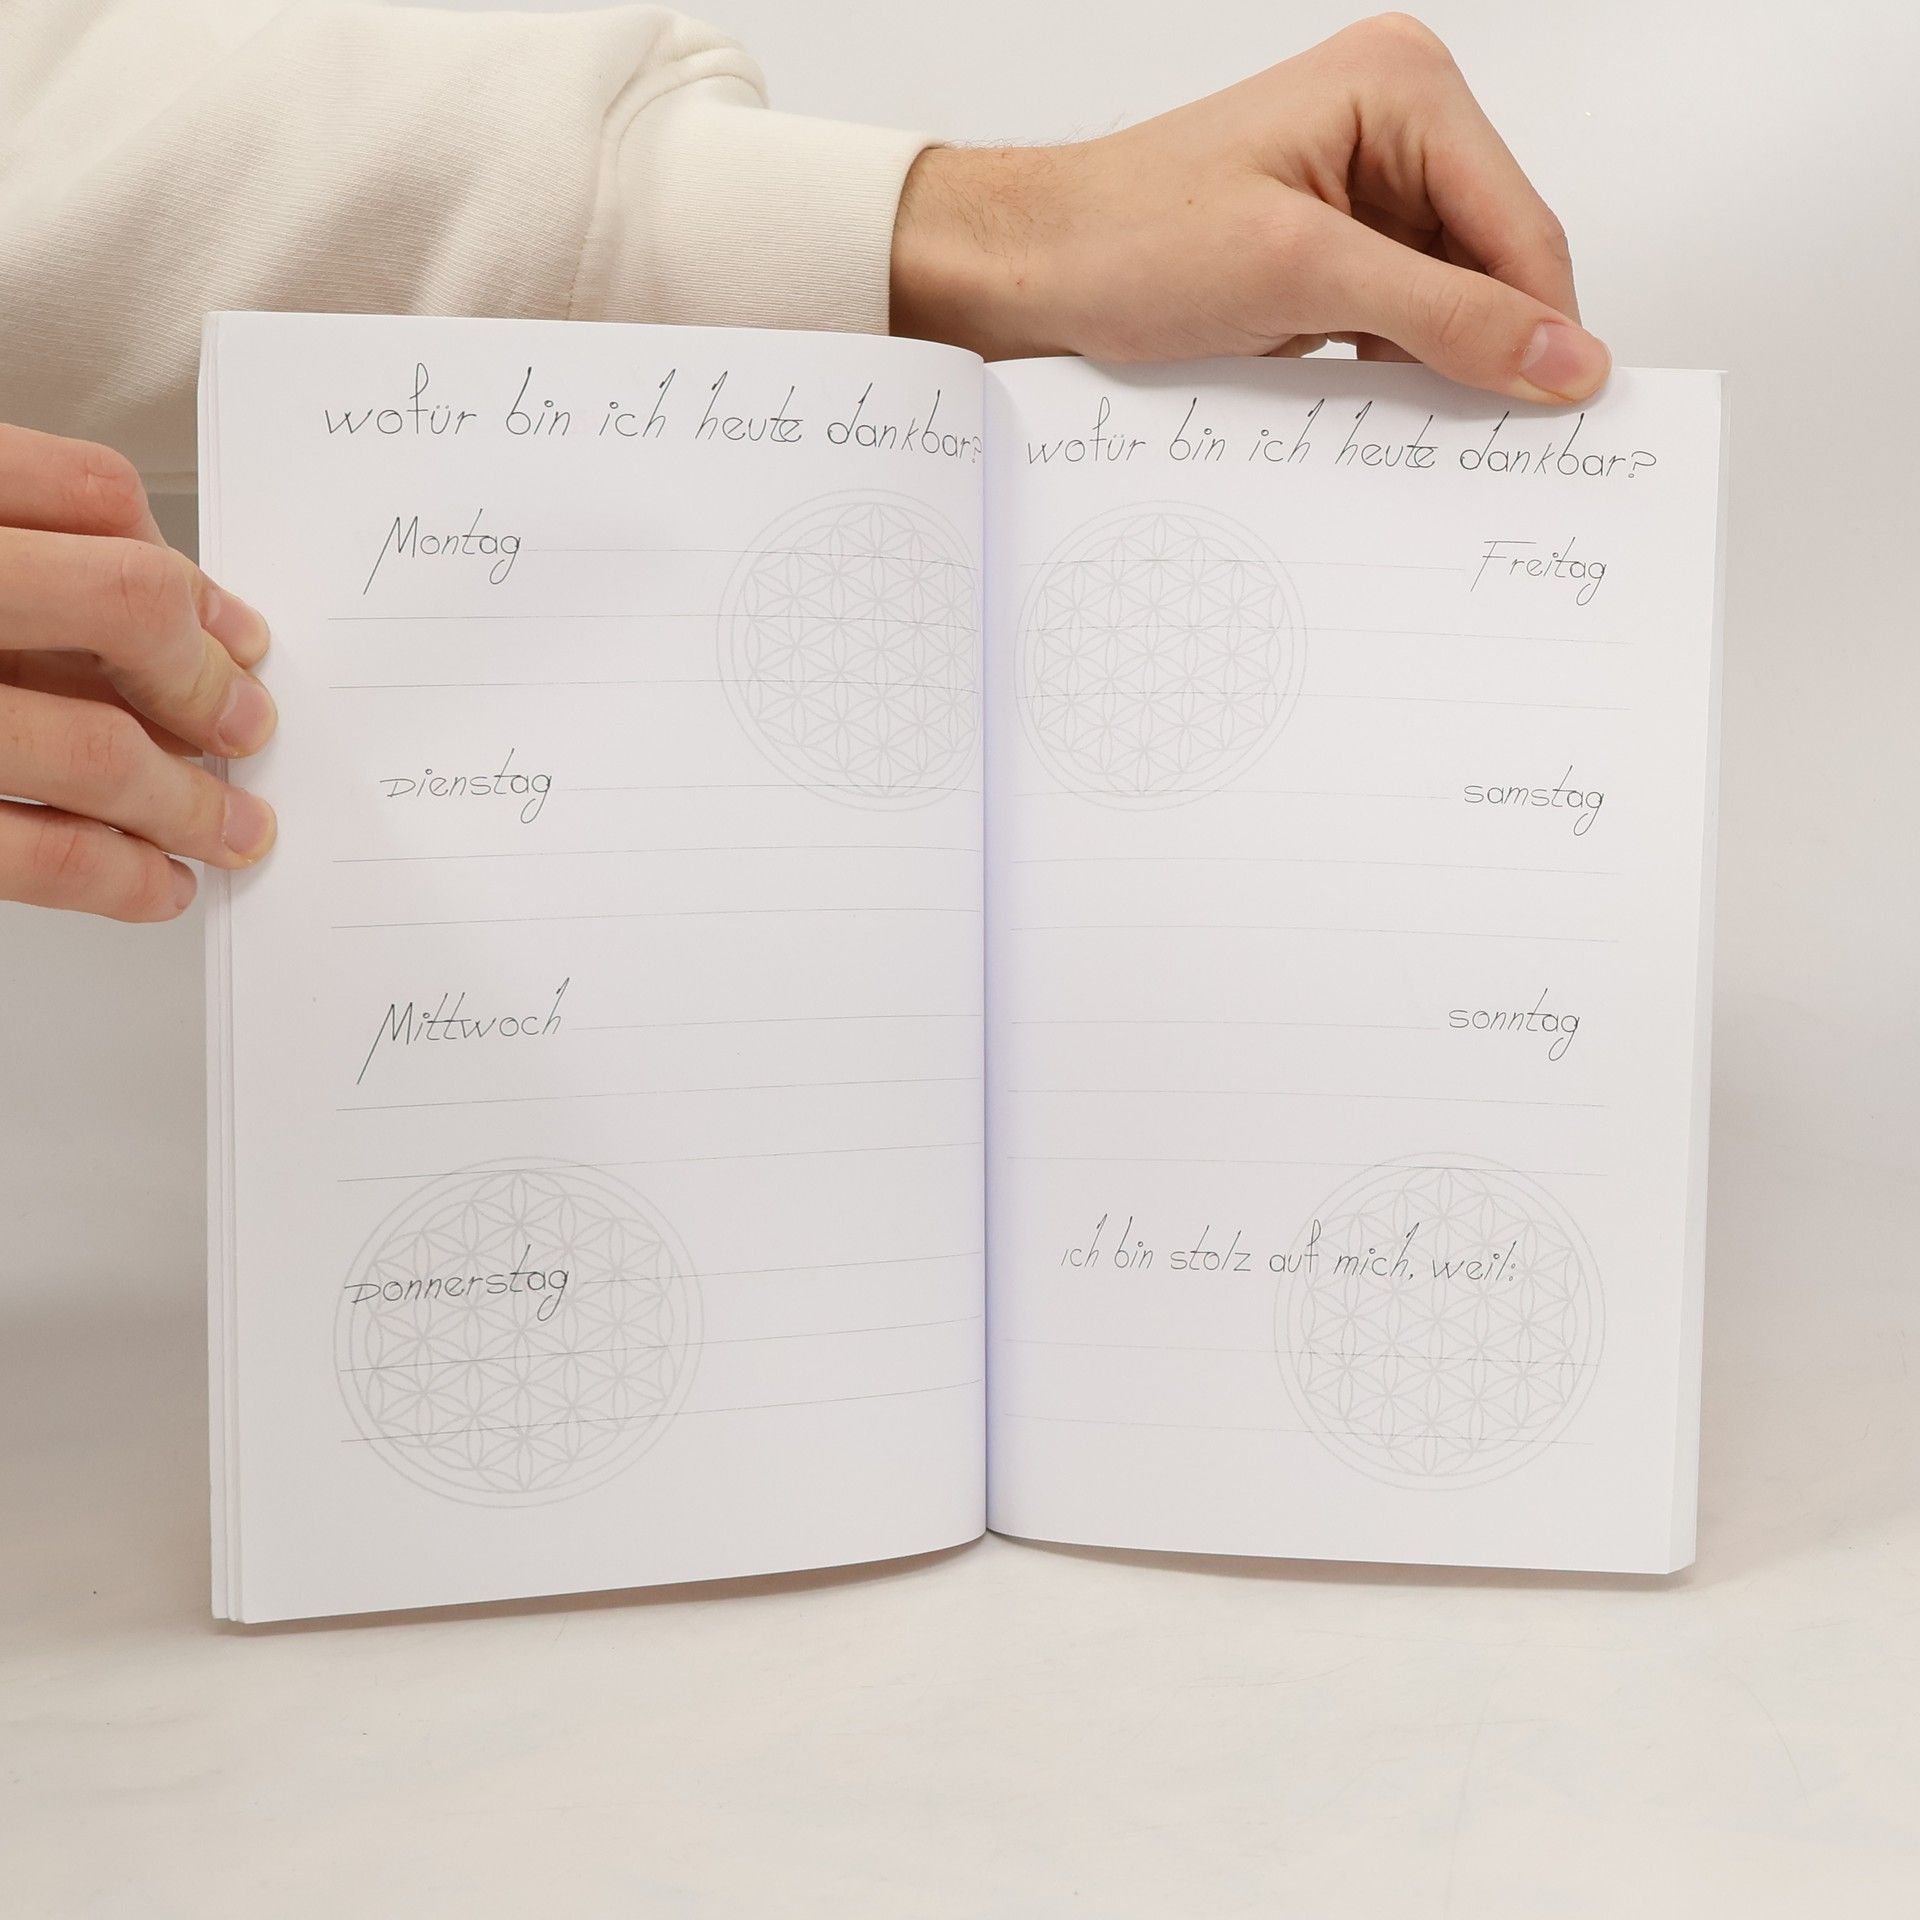 wofür bin ich heute dankbar?
Montag
Dienstag
Mittwoch
Donnerstag
wofür bin ich heute dankbar?
Freitag
samstag
sonntag
ich bin stolz auf mich, weil: